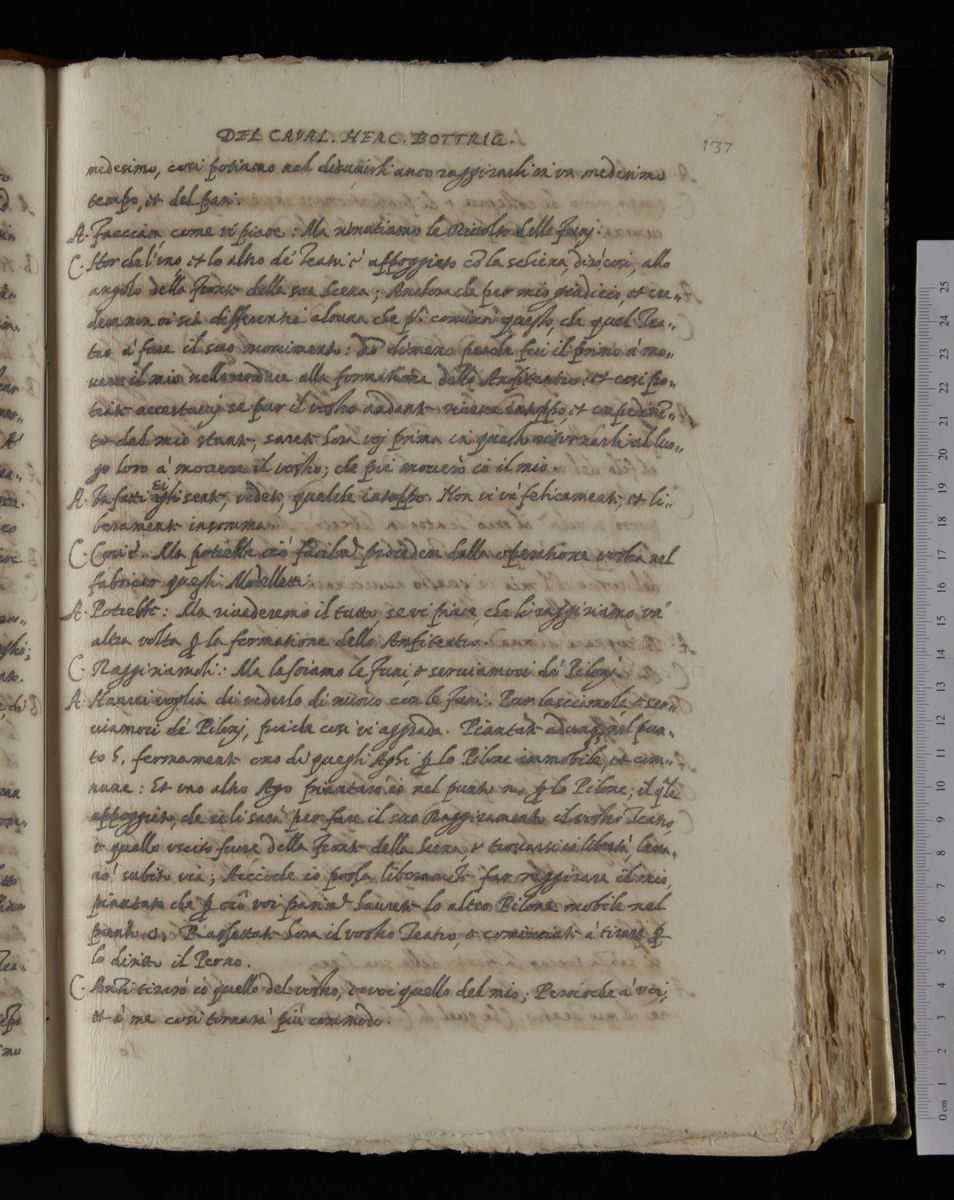 DEL CAVAL. HERC. BOTTRIG.
137
medesimo, così potiamo nel disunirli anco raggirarli in un medesimo
tempo, et del pari.
A. Faccian come vi piace: Ma rimutiamo le Rivolte delle Funi.
C. Hor che l'uno, et lo altro de i Teatri è appoggiato cō la schiena, dirò così, allo
angolo della fronte della sua scena; Anchora che per mio giudicio, et cre„
dere non vi sia differentia alcuna che p.ª cominci questo, che quel Tea„
tro à fare il suo movimento: nō dimeno perche fui il primo à mo„
vere il mio nello andare alla formatione dello Anfiteatro: et così po„
trete accertarvi se pur il vostro andante riceva intoppo, et impedimē„
to dal mio stante, sarete hora voi prima in questo ritornarli al luo„
go loro à movere il vostro; che poi moverò io il mio.
A. In fatti Ei egli sente, vedete, qualche intoppo. Non vi và felicemente, et li„
beramente insomma.
C. Così è. Ma potrebbe ciò facilmẽ procedere dalla operatione vostra nel
fabricar questi Modelletti.
A. Potrebbe: Ma rivederemo il tutto, se vi piace, che li raggiriamo un'
altra volta ꝑ la formatione dello Anfiteatro.
C. Raggiriamoli: Ma lasciamo le Funi e serviamoci de' Piloni.
A. Haurei voglia di vederlo di nuovo con le funi. Pur lasciamole, e ser„
viamoci de' Piloni, poiche così vi aggrada. Piantate adunque nel pun„
to h, fermamente uno di quegli Aghi ꝑ lo Pilone immobile, et com„
mune: Et uno altro Ago piantarò io nel punto n, ꝑ lo Pilone; il q̃le
appoggiato, che se li sarà per fare il suo Raggiramento il vostro Teatro,
e quello uscito fuora della Fronte della Scena, e trovarsi in libertà, leva„
rò subito via; Acciòche io possa liberamẽte far raggirare il mio,
piantato che ꝑ ciò voi parimẽ haurete lo altro Pilone mobile nel
punto o. Rassettate hora il vostro Teatro, e cominciate à tirare ꝑ
lo diritto il Perno.
C. Anzi tirarò io quello del vostro, e voi quello del mio; Percioche à voi,
et à me così tornarà più commodo.